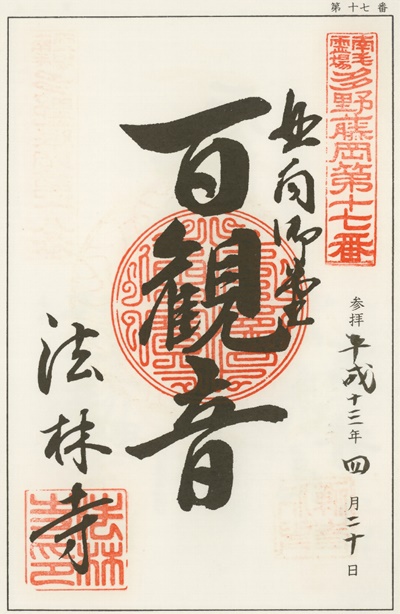 第十七番
南毛
霊場
多野藤岡第十七番
参拝 平成十三年 四月二十日
百観音
法林寺
法林
寺印